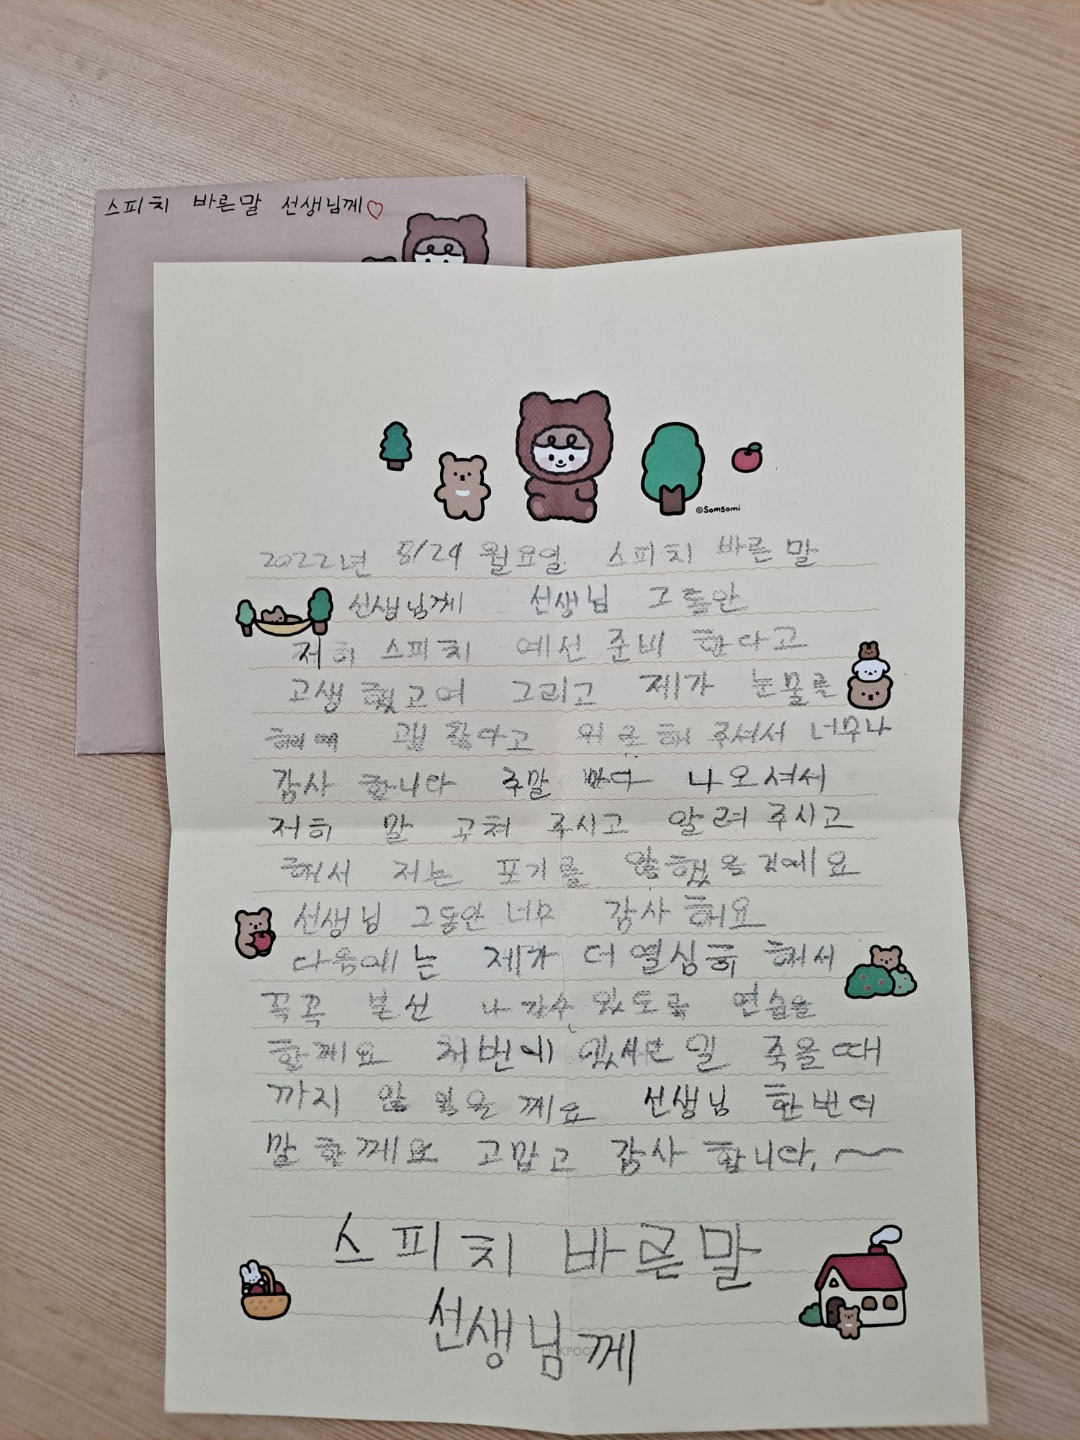 스피치 바른말 선생님께♡
©Somsomi
2022년 8/24 월요일 스피치 바른말
선생님께 선생님 그동안
저희 스피치 예선 준비 한다고
고생 했고여 그리고 제가 눈물을
위로해 주셔서 너무나
감사 합니다 주말 마다 나오셔서
저희 말 고쳐 주시고 알려 주시고
해서 저는 포기를 않했을 것에요
선생님 그동안 너무 감사 해요
다음에는 제가 더 열심히 해서
꼭꼭 본선 나 갈수 있도록 연습을
할께요 저번에 있서던 일 죽을때
까지 않 잊을 께요 선생님 한번더
말 할께요 고맙고 감사 합니다. ~
스피치 바른말
선생님께